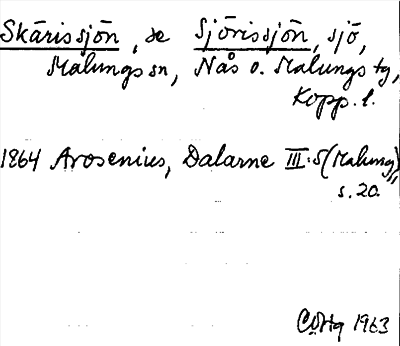 Skärissjön, se Sjörissjön, sjö,
Malungs sn, Nås o. Malungs tg,
Kopp. l.
1864 Arosenius, Dalarne III:5 (Malung),
s. 20.
1963